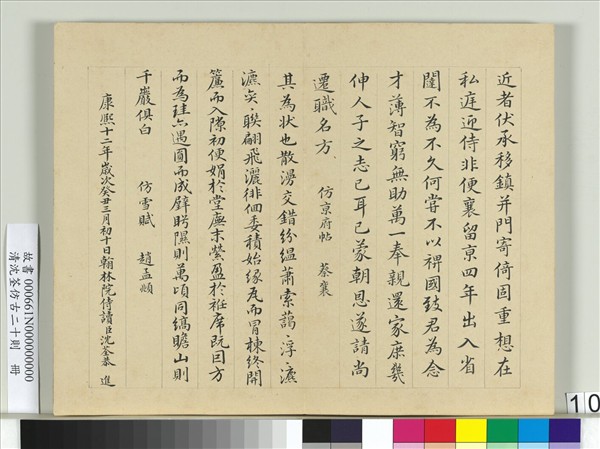 近者伏承移鎮并門寄倚固重想在
私庭迎侍非便襄留京四年出入省
闥不為不久何嘗不以裨國致君為念
才薄智窮無助萬一奉親還家庶幾
伸人子之志已耳已蒙朝恩遂請尚
遷職名方　仿京府帖　蔡襄
其為状也散漫交錯紛縕蕭索藹〻浮〻瀌
瀌奕〻聯翩飛灑徘佪委積始緣甍而冒棟終開
簾而入隙初便娟於堂廡末縈盈於袵席既因方
而為珪亦遇圓而成璧眄隰則萬頃同縞瞻山則
千巖俱白　仿雪賦　趙孟頫
康熙十二年歲次癸丑三月初十日翰林院侍讀臣沈荃恭進
故書 000661N000000000
清沈荃仿古二十則 冊
10